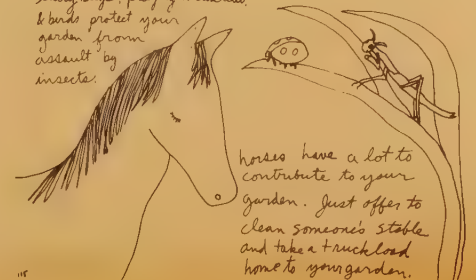 & birds protect your
garden from
assault by
insects.
horses have a lot to
contribute to your
garden. Just offer to
clean someone's stable
and take a truckload
home to your garden.